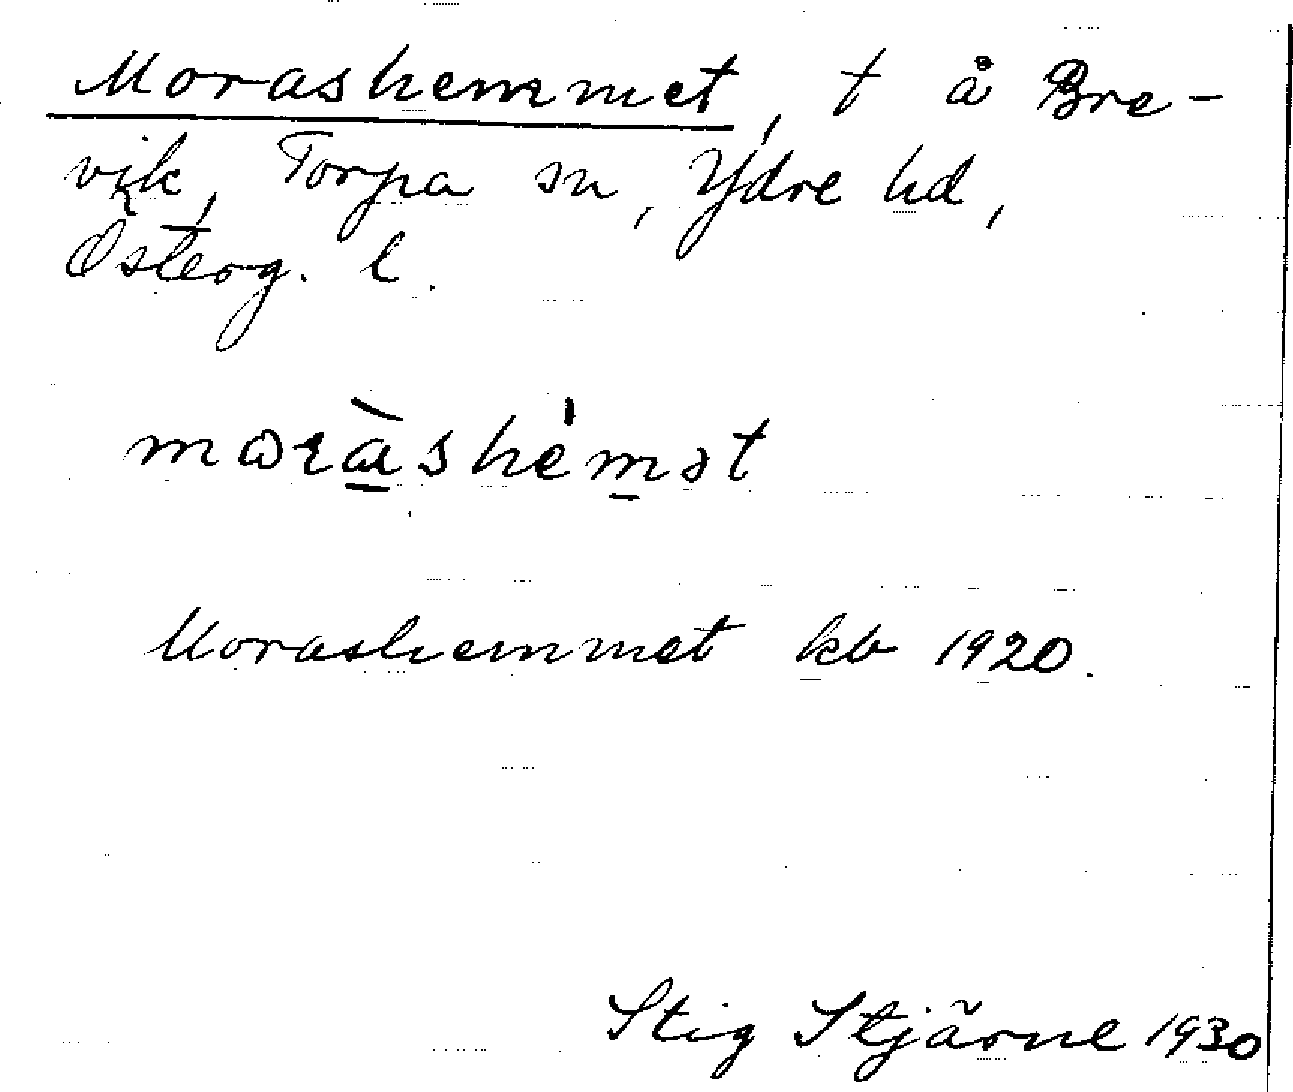 Morashemmet, t å Bre-
vik, Torpa sn, Ydre hd,
Österg. l.
moràshémət
Morashemmet kb 1920.
Stig Stjärne 1930